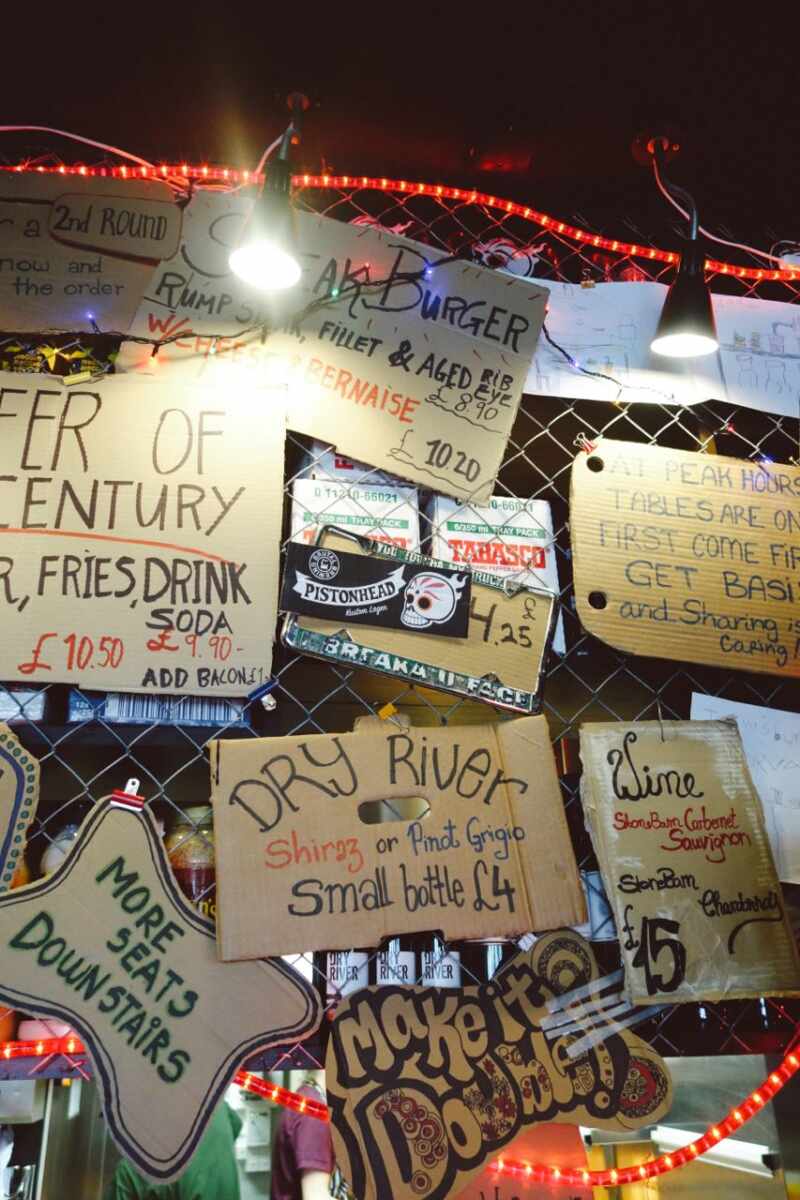 2nd ROUND
now and
the order
STEAK BURGER
RUMP STEAK, FILLET & AGED RIB EYE
£8.90
W/CHEESE & BERNAISE
£10.20
OF
CENTURY
FRIES, DRINK
SODA
£10.50 £9.90-
ADD BACON £1
0 11210-66021
6/350 ml TRAY PACK
6/350 ml TRAY PACK
TABASCO
BRUTAL BREWING
PISTONHEAD
Kustom Lager
£4.25
BREAKA U FACE
AT PEAK HOURS
TABLES ARE ON
FIRST COME
GET
and Sharing is
Caring!
DRY RIVER
Shiraz or Pinot Grigio
Small bottle £4
Wine
StoneBarn Carbernet
Sauvignon
StoneBarn
Chardonnay
£15
MORE
SEATS
DOWNSTAIRS
DRY RIVER
DRY RIVER
DRY RIVER
Make it
Double!